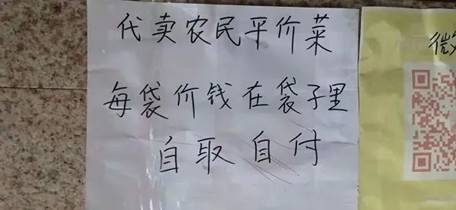 代卖农民平价菜
每袋价钱在袋子里
自取自付
微